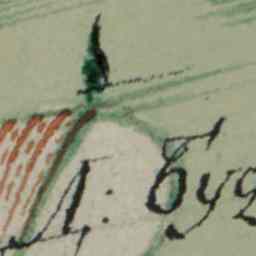 Д: буд